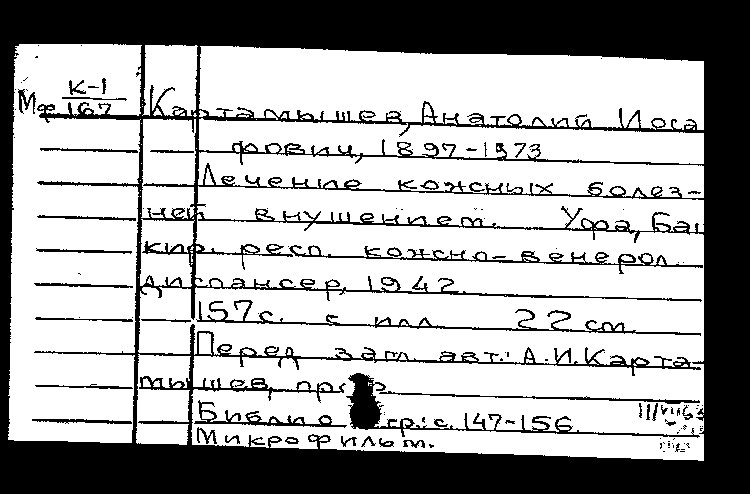 К-1
Мф 167
Картамышев, Анатолий Иоса
фович, 1897-1973
Лечение кожных болез-
ней внушением. Уфа, Баш
кир. респ. кожно-венерол.
диспансер, 1942.
157с. с илл. 22 см.
Перед загл. авт.: А.И.Карта-
мышев, проф.
Библиогр.: с. 147-156.
Микрофильм.